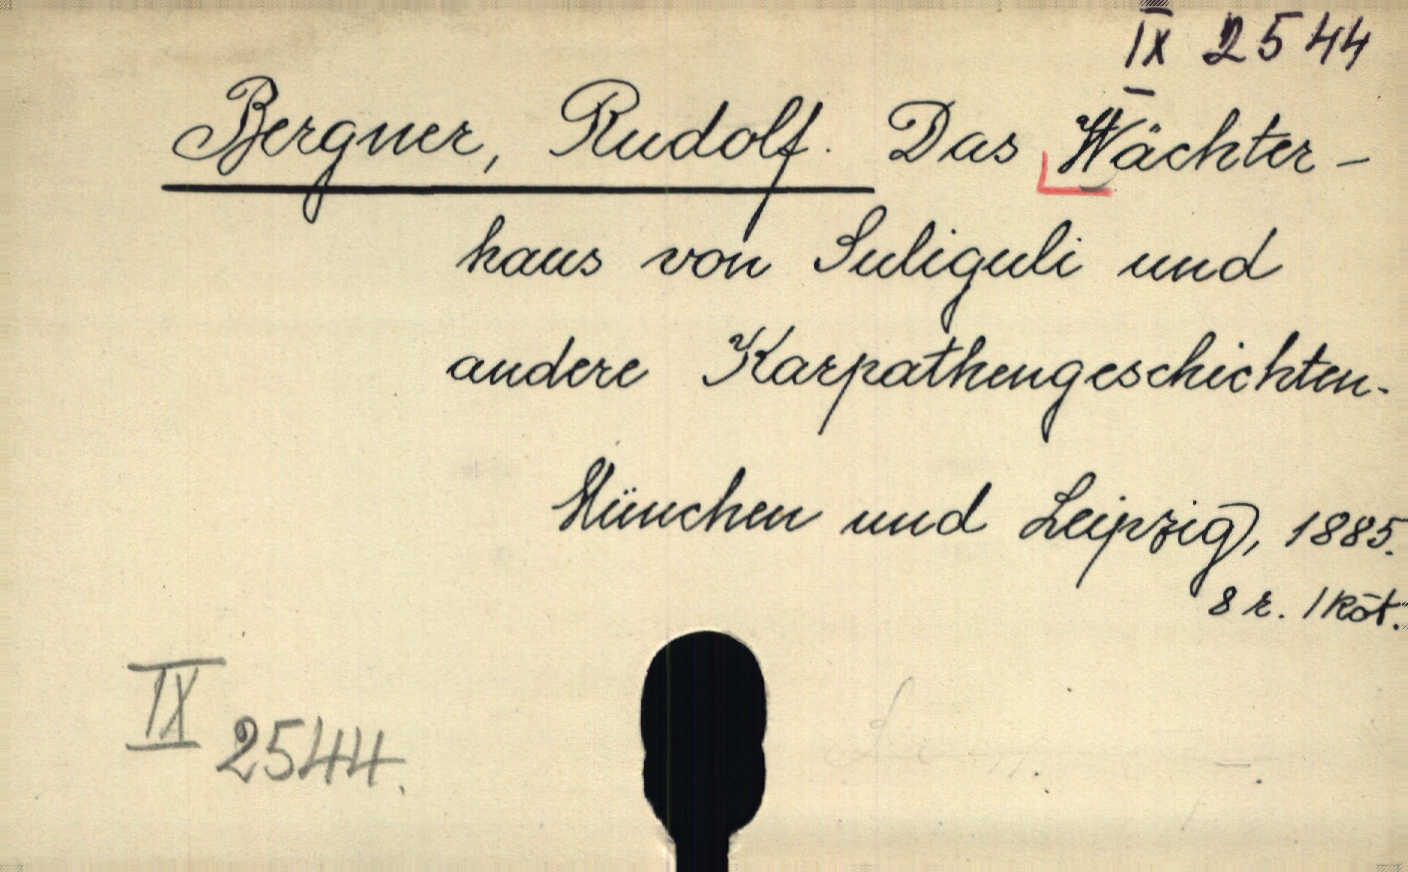 IX 2544
Bergner, Rudolf. Das Wächter-
haus von Suliguli und
andere Karpathengeschichten.
München und Leipzig, 1885.
8 r. 1 köt.
IX 2544.